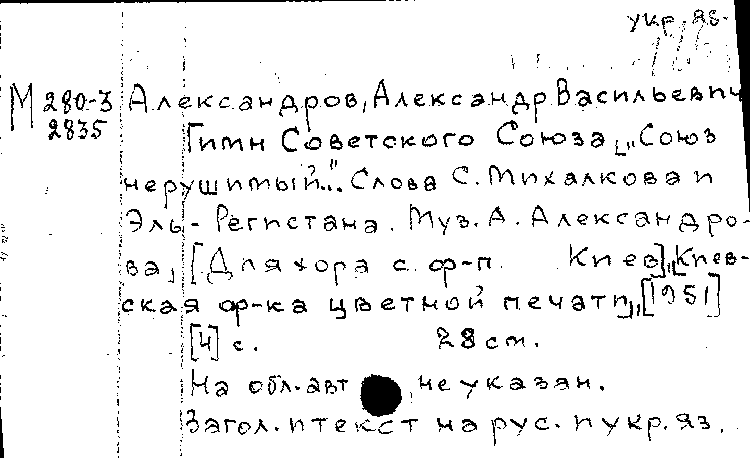 укр. яз.
М 280-3 Александров, Александр Васильевич
2835 Гимн Советского Союза. [„Союз
нерушимый..." Слова С. Михалкова и
Эль-Регистана. Муз. А. Александро-
ва, [Для хора с ф-п. Киев], Киев-
ская ф-ка цветной печати, [1951]
[4] с. 28 см.
На обл. авт не указан.
Загол. и текст на рус. и укр. яз.